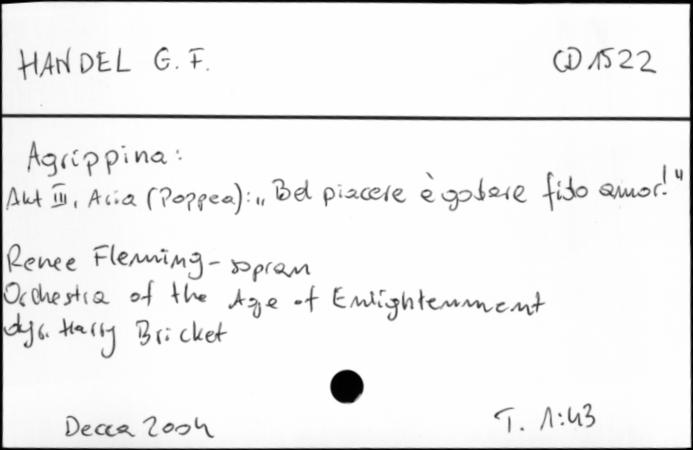 HANDEL G. F.
CD 1522
Agrippina:
Akt III, Aria (Poppea): „Bel piacere è godere fido amor!"
Renee Flemming - sopran
Orchestra of the Age of Enlightenment
dyr. Harry Bricket
Decca 2004
T. 1:43